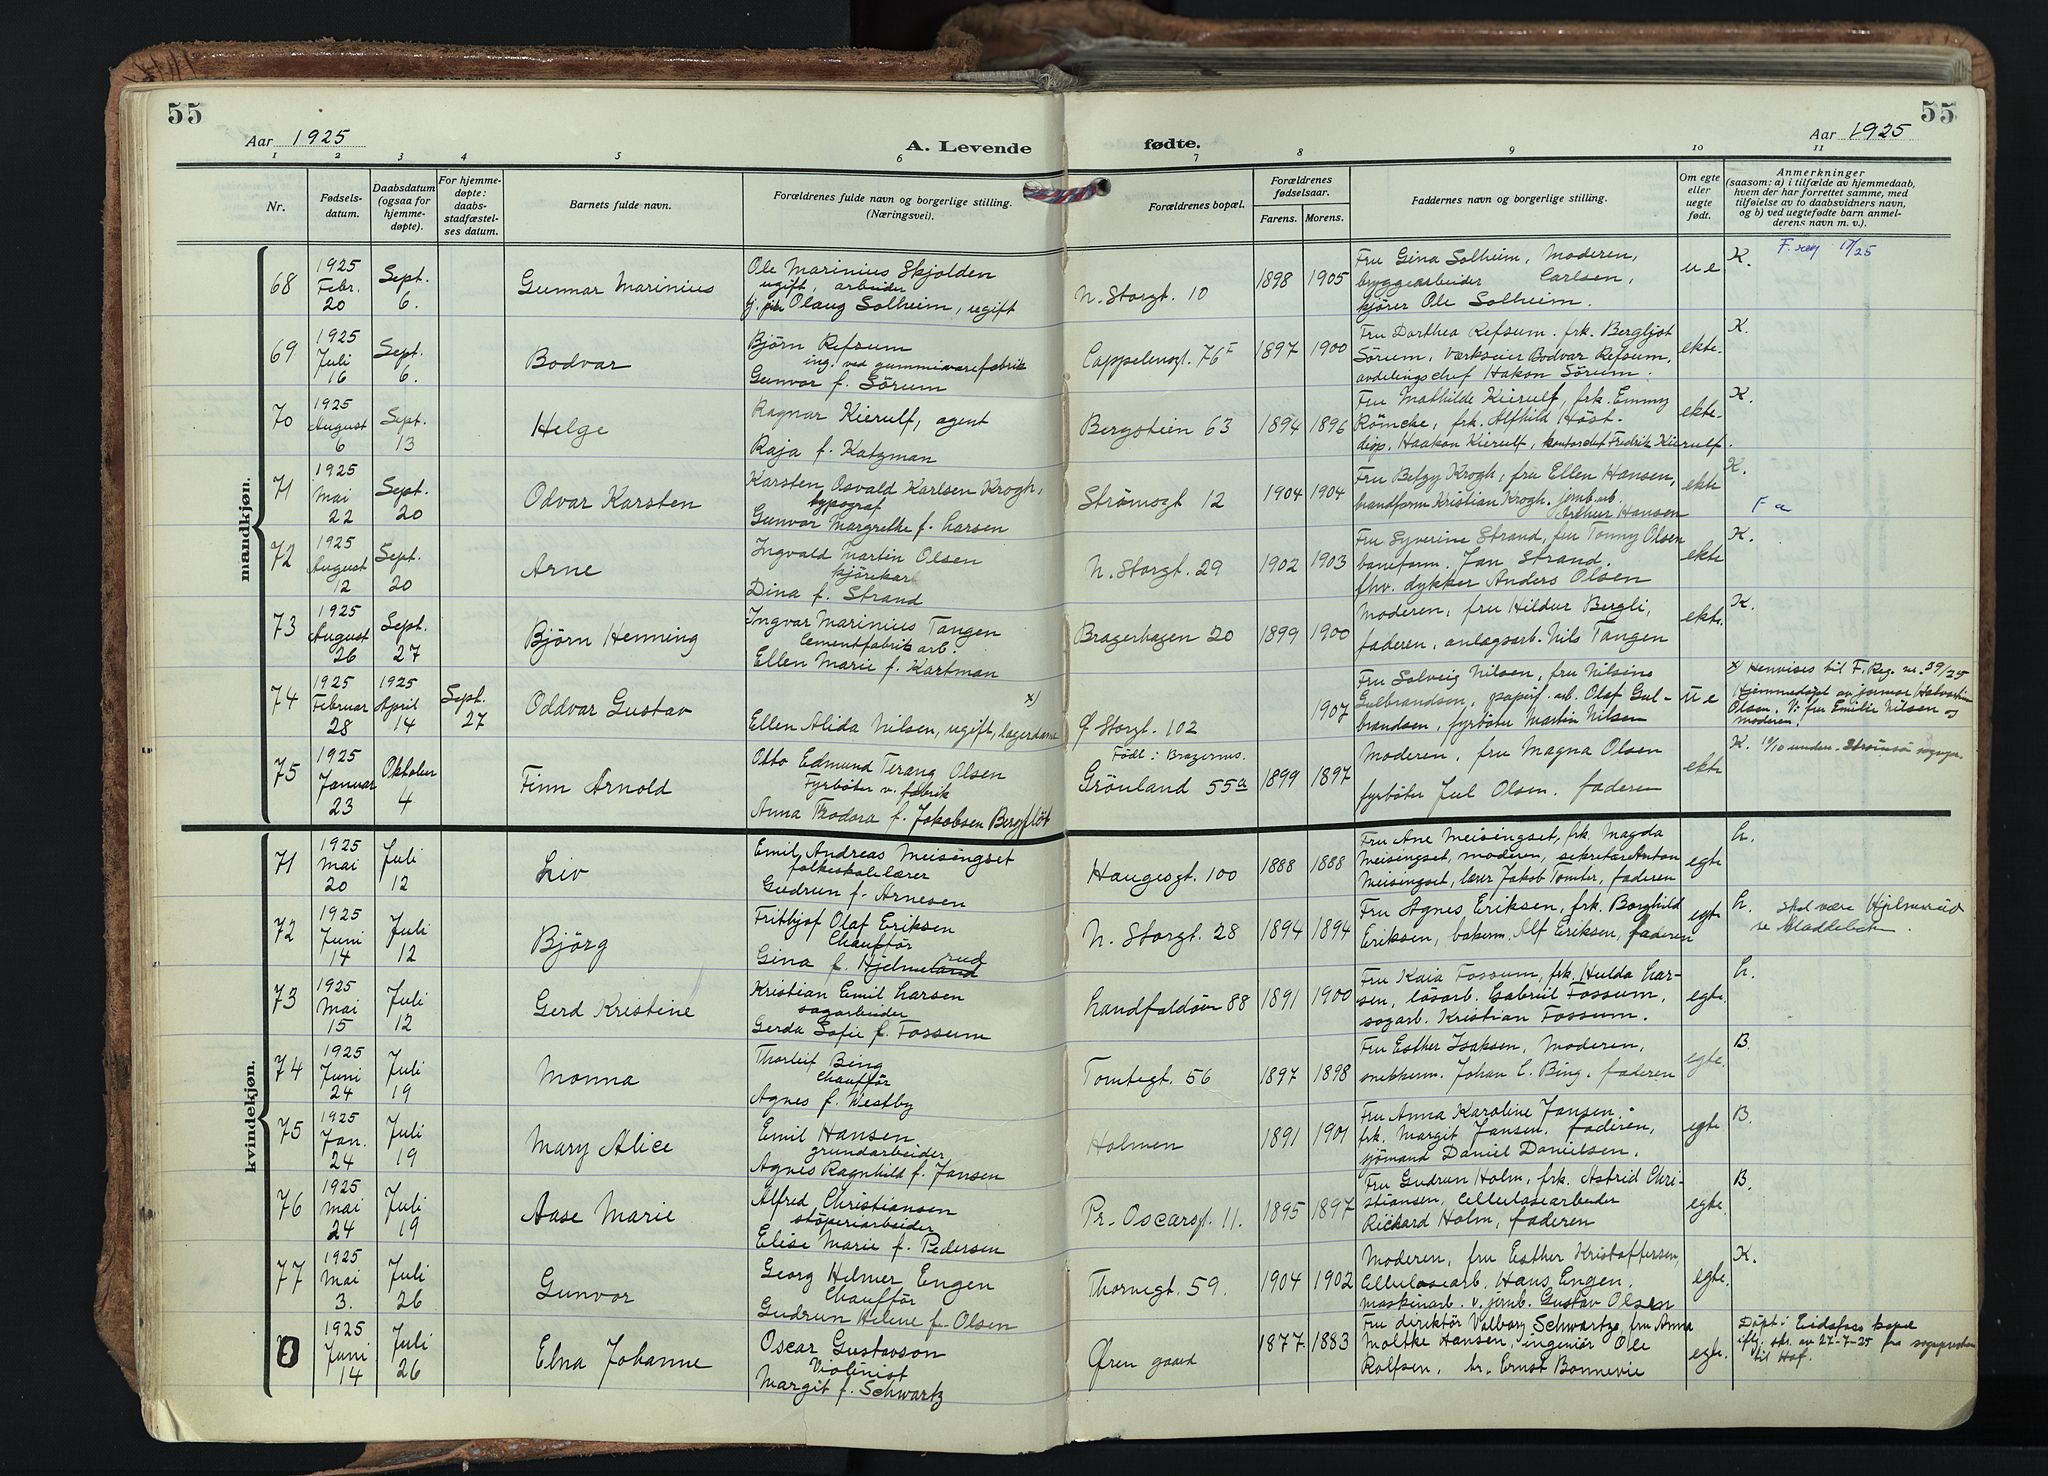 55
55
Aar 1925
A. Levende fødte.
Aar 1925
1 2 3 4 5 6 7 8 9 10 11
Nr.
Fødsels-
datum.
Daabsdatum
(ogsaa for
hjemme-
døpte).
For hjemme-
døpte:
daabs-
stadfæstel-
ses datum.
Barnets fulde navn.
Forældrenes fulde navn og borgerlige stilling.
(Næringsvei).
Forældrenes bopæl.
Forældrenes
fødselsaar.
Farens. Morens.
Faddernes navn og borgerlige stilling.
Om egte
eller
uegte
født.
Anmerkninger
(saasom: a) i tilfælde av hjemmedaab,
hvem der har forrettet samme, med
tilføielse av to daabsvidners navn,
og b) ved uegtefødte barn anmel-
derens navn m. v.).
mandkjøn.
68
1925
Febr.
20
Sept.
6.
Gunnar Marinius
Ole Marinius Skjolden
ugift, arbeider
Olaug Solheim, ugift
N. Storgt. 10
1898 1905
Fru Gina Solheim, Moderen,
bryggearbeider Carlsen,
kjører Ole Solheim.
u e
K.
69
1925
Juli
16
Sept.
6.
Bodvar
Bjørn Refsum
ing. ved gummivarefabrik
Gunvor f. Sörum
Cappelensgt. 76 F
1897 1900
Fru Dorthea Refsum. frk. Bergljot
Sörum, Værkseier Bodvar Refsum,
avdelingschef Hakon Sörum.
ekte
K.
70
1925
August
6
Sept.
13
Helge
Ragnar Kierulf, agent
Raja f. Katzman
Bergstien 63
1894 1896
Fru Mathilde Kierulf, frk. Emmy
Römcke, frk. Alfhild Höst.
disp. Haakon Kierulf, kontorchef Fredrik Kierulf.
ekte
K.
71
1925
Mai
22
Sept.
20
Odvar Karsten
Karsten Osvald Karlsen Krogh,
typograf
Gunvor Margrethe f. Larsen
Strömsgt 12
1904 1904
Fru Betzy Krogh, fru Ellen Hansen,
brandform Kristian Krogh. jernb. arb.
Arthur Hansen
ekte
K.
F a
72
1925
August
12
Sept.
20
Arne
Ingvald Martin Olsen
kjörekar
Dina f. Strand
N. Storgt. 29
1902 1903
Fru Syverine Strand, fru Tonny Olsen
baneform. Jan Strand.
fhv. dykker Anders Olsen
ekte
K.
73
1925
August
26
Sept.
27
Björn Henning
Ingvar Marinius Tangen
Cementfabrik arb.
Ellen Marie f. Kartman
Bragerhagen 20
1899 1900
Moderen, fru Hildur Bergli,
faderen, anlægsarb. Nils Tangen
ekte
K.
74
1925
Februar
28
1925
April
14
Sept.
27
Oddvar Gustav
x)
Ellen Alida Nilsen, ugift, lagerdame
Ø Storgt. 102
1907
Fru Solveig Nilsen, fru Nilsine
Gulbrandsen, papirf. arb. Olaf Gul-
brandsen, fyrböter Martin Nilsen
u e
x) Henvises til F. Reg. nr. 39/25
Hjemmedöpt av jormor Halvardine
Olsen. V: fru Emilie Nilsen og
moderen.
75
1925
Januar
23
Oktober
4
Finn Arnold
Otto Edmund Terang Olsen
Fyrböter v. fabrik
Anna Teodora f. Jakobsen Bergflöt
Født: Bragernes.
Grönland 55a
1899 1897
Moderen, fru Magna Olsen
fyrböter Jul Olsen. faderen
ekte
K.
kvindekjøn.
71
1925
Mai
20
Juli
12
Liv
Emil Andreas Meisingset
folkeskolelærer
Gudrun f. Arnesen
Haugesgt. 100
1888 1888
Fru Ane Meisingset, frk. Magda
Meisingset, moderen, sekretær Anton
Meisingset, lærer Jakob Tomter, faderen
egte
L.
72
1925
Juni
14
Juli
12
Björg
Frithjof Olaf Eriksen
Chaufför
Gina f. Hjelmeland rud
N. Storgt. 28
1894 1894
Fru Agnes Eriksen, frk. Borghild
Eriksen, bakerm. Alf Eriksen, faderen
egte
L.
skal være Hjelmerud
se kladdebok.
73
1925
Mai
15
Juli
12
Gerd Kristine
Kristian Emil Larsen
sagarbeider
Gerda Sofie f. Fossum
Landfaldöen 88
1891 1900
Fru Kaia Fossum, frk. Hulda Lar-
sen, lösarb. Gabriel Fossum,
sagarb. Kristian Fossum.
egte.
L.
74
1925
Juni
24
Juli
19
Monna
Thorleif Bing
Chaufför
Agnes f. Westby
Tomtegt. 56
1897 1898
Fru Esther Isaksen, Moderen,
snekkerm. Johan C. Bing, faderen
egte.
B.
75
1925
Jan.
24
Juli
19
Mary Alice
Emil Hansen
grundarbeider
Agnes Ragnhild f. Jansen
Holmen
1891 1901
Fru Anna Karoline Jansen.
frk. Margit Jansen, faderen,
sjömand Daniel Danielsen.
egte
B.
76
1925
Mai
24
Juli
19
Aase Marie
Alfred Christiansen
støperiarbeider
Elise Marie f. Pedersen
Pr. Oscarsg. 11.
1895 1897
Fru Gudrun Holm, frk. Astrid Chri-
stiansen, Cellulosearbeider
Rickard Holm, faderen
egte.
B.
77
1925
Mai
3.
Juli
26
Gunvor
Georg Helmer Engen
Chaufför
Gudrun Helene f. Olsen
Thornegt. 59.
1904 1902
Moderen, fru Esther Kristoffersen,
Cellulosearb. Hans Engen.
maskinarb. v. jernb. Gustav Olsen
egte.
K.
1925
Juni
14
Juli
26
Elna Johanne
Oscar Gustavson
Violinist
Margit f. Schwartz
Øren gaard
1877 1883
Fru direktör Valborg Schwartz, fru Anna
Moltke Hansen, ingeniör Ole
Rolfsen, hr. Ernst Bonnevie
egte.
Döpt i Eidsfoss kapel
iflg. skr. av 27-7-25 fra sogneprsten
til Hof.